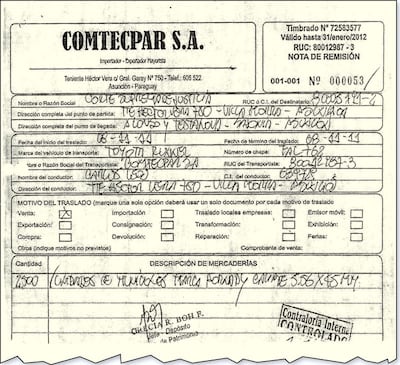 COMTECPAR S.A.
Importador - Exportador Mayorista
Teniente Héctor Vera c/ Gral. Garay Nº 750 - Telef.: 605 522
Asunción - Paraguay
Timbrado Nº 72583577
Válido hasta 31/enero/2012
RUC: 80012987 - 3
NOTA DE REMISIÓN
001-001 Nº 000053
Nombre o Razón Social CORTE SUPREMA DE JUSTICIA RUC ó C.I. del Destinatario:
Dirección completa del punto de partida: TTE HECTOR VERA 750 - VILLA MORRA - ASUNCION
Dirección completa del punto de llegada: ALONSO Y TESTANOVA - ASUNCION
Fecha del inicio del traslado: 08-11-11 Fecha de término del traslado: 08-11-11
Marca del vehículo de transporte: TOYOTA Número de chapa:
Nombre o Razón Social del Transportista: COMTECPAR SA RUC del Transportista: 80012987-3
Nombre del conductor: CARLOS C.I. del conductor:
Dirección del conductor: TTE HECTOR VERA 750 - VILLA MORRA - ASUNCION
MOTIVO DEL TRASLADO (marque una sola opción deberá usar un solo documento por cada motivo de traslado
Venta: X Importación: Traslado locales empresa: Emisor móvil:
Exportación: Consignación: Transformación: Exhibición:
Compra: Devolución: Reparación: Ferias:
Otros (indique motivos no previstos) Comprobante de venta:
Cantidad DESCRIPCIÓN DE MERCADERÍAS
2500 UNIDADES DE MUNICIONES MARCA CALIBRE 5.56 X 45 MM.
GARCIA R. BOH F.
Jefe - Depósito
de Patrimonio
Contraloria Interna
CONTROLADO